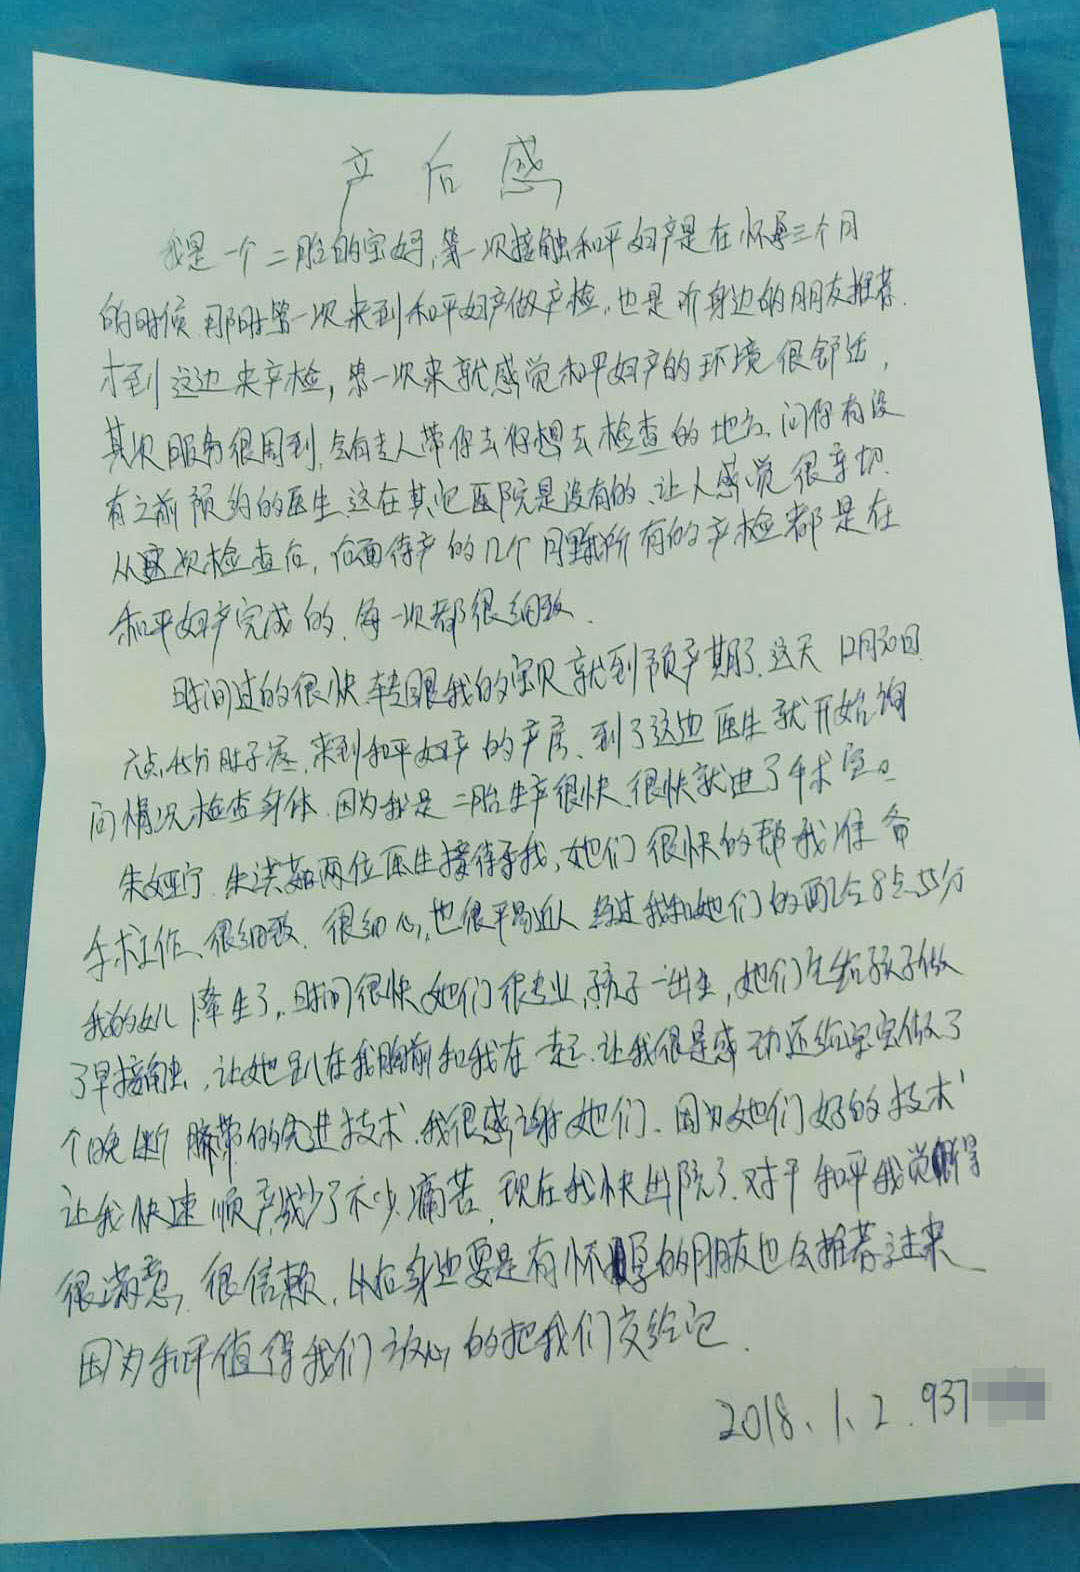 产后感
我是一个二胎的宝妈，第一次接触和平妇产是在怀孕三个月
的时候 那时第一次来到和平妇产做产检，也是听身边的朋友推荐
才到这边来产检，第一次来就感觉和平妇产的环境很舒适，
其次服务很周到，会有专人带你去你想去检查的地方、问你有没
有之前预约的医生、这在其它医院是没有的、让人感觉很亲切.
从这次检查后，后面待产的几个月里我所有的产检都是在
和平妇产完成的、每一次都很细致、
时间过的很快 转眼我的宝贝就到预产期了、这天12月30日
六点45分肚子疼、来到和平妇产的产房、到了这边医生就开始询
问情况检查身体、因为我是二胎生产很快、很快就进了手术室。
朱娅宁、朱洪茹两位医生接待了我，她们很快的帮我准备
手术工作、很细致、很细心，也很平易近人 经过我和她们的配合8点55分
我的女儿降生了，时间很快她们很专业，孩子一出生，她们先给孩子做
了早接触，让她趴在我胸前和我在一起、让我很是感动还给宝宝做了
个晚断脐带的先进技术、我很感谢她们、因为她们好的技术
让我快速顺产减少了不少痛苦，现在我快出院了、对于和平我觉得
很满意，很信赖，以后身边要是有怀孕的朋友也会推荐过来
因为和平值得我们放心的把我们交给它.
2018、1、2、937